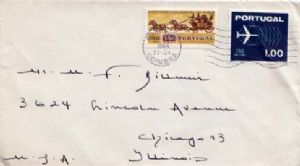 PORTUGAL
PORTUGAL
1.00
COIMBRA
Mr. M. F.
3624 Lincoln Avenue
Chicago 13
Illinois
U.S.A.